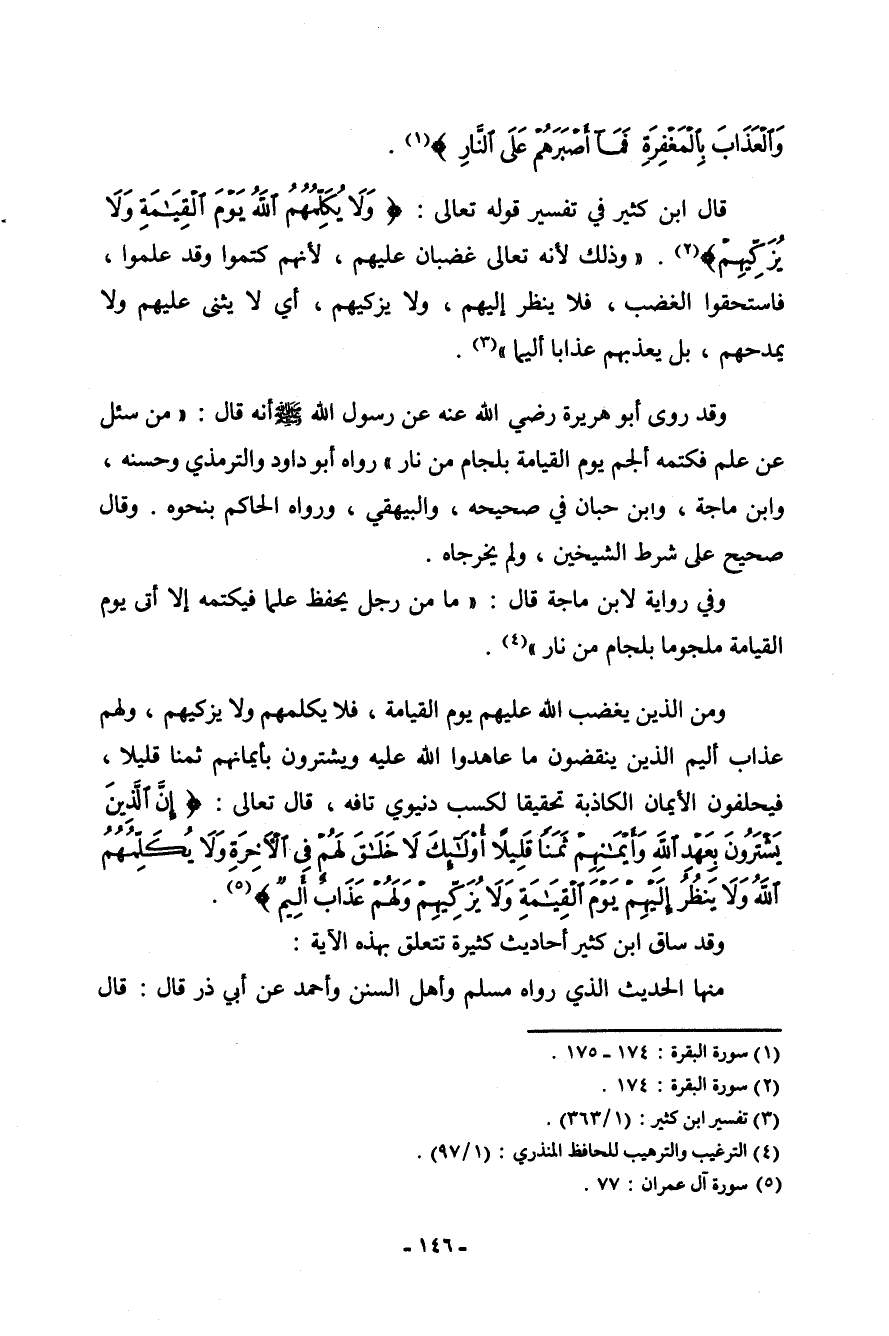 وَٱلْعَذَابَ بِٱلْمَغْفِرَةِ فَمَآ أَصْبَرَهُمْ عَلَى ٱلنَّارِ ﴾(١) .
قال ابن كثير في تفسير قوله تعالى : ﴿ وَلَا يُكَلِّمُهُمُ ٱللَّهُ يَوْمَ ٱلْقِيَـٰمَةِ وَلَا
يُزَكِّيهِمْ﴾(٢) . « وذلك لأنه تعالى غضبان عليهم ، لأنهم كتموا وقد علموا ،
فاستحقوا الغضب ، فلا ينظر إليهم ، ولا يزكيهم ، أي لا يثنى عليهم ولا
يمدحهم ، بل يعذبهم عذابا أليما »(٣) .
وقد روى أبو هريرة رضي الله عنه عن رسول الله ﷺ أنه قال : « من سئل
عن علم فكتمه ألجم يوم القيامة بلجام من نار » رواه أبو داود والترمذي وحسنه ،
وابن ماجة ، وابن حبان في صحيحه ، والبيهقي ، ورواه الحاكم بنحوه . وقال
صحيح على شرط الشيخين ، ولم يخرجاه .
وفي رواية لابن ماجة قال : « ما من رجل يحفظ علما فيكتمه إلا أتى يوم
القيامة ملجوما بلجام من نار »(٤) .
ومن الذين يغضب الله عليهم يوم القيامة ، فلا يكلمهم ولا يزكيهم ، ولهم
عذاب أليم الذين ينقضون ما عاهدوا الله عليه ويشترون بأيمانهم ثمنا قليلا ،
فيحلفون الأيمان الكاذبة تحقيقا لكسب دنيوي تافه ، قال تعالى : ﴿ إِنَّ ٱلَّذِينَ
يَشْتَرُونَ بِعَهْدِ ٱللَّهِ وَأَيْمَـٰنِهِمْ ثَمَنًا قَلِيلًا أُو۟لَـٰٓئِكَ لَا خَلَـٰقَ لَهُمْ فِى ٱلْأَخِرَةِ وَلَا يُكَلِّمُهُمُ
ٱللَّهُ وَلَا يَنظُرُ إِلَيْهِمْ يَوْمَ ٱلْقِيَـٰمَةِ وَلَا يُزَكِّيهِمْ وَلَهُمْ عَذَابٌ أَلِيمٌ ﴾(٥) .
وقد ساق ابن كثير أحاديث كثيرة تتعلق بهذه الآية :
منها الحديث الذي رواه مسلم وأهل السنن وأحمد عن أبي ذر قال : قال
(١) سورة البقرة : ١٧٤ ـ ١٧٥ .
(٢) سورة البقرة : ١٧٤ .
(٣) تفسير ابن كثير : (١/٣٦٣) .
(٤) الترغيب والترهيب للحافظ المنذري : (١/٩٧) .
(٥) سورة آل عمران : ٧٧ .
- ١٤٦ -